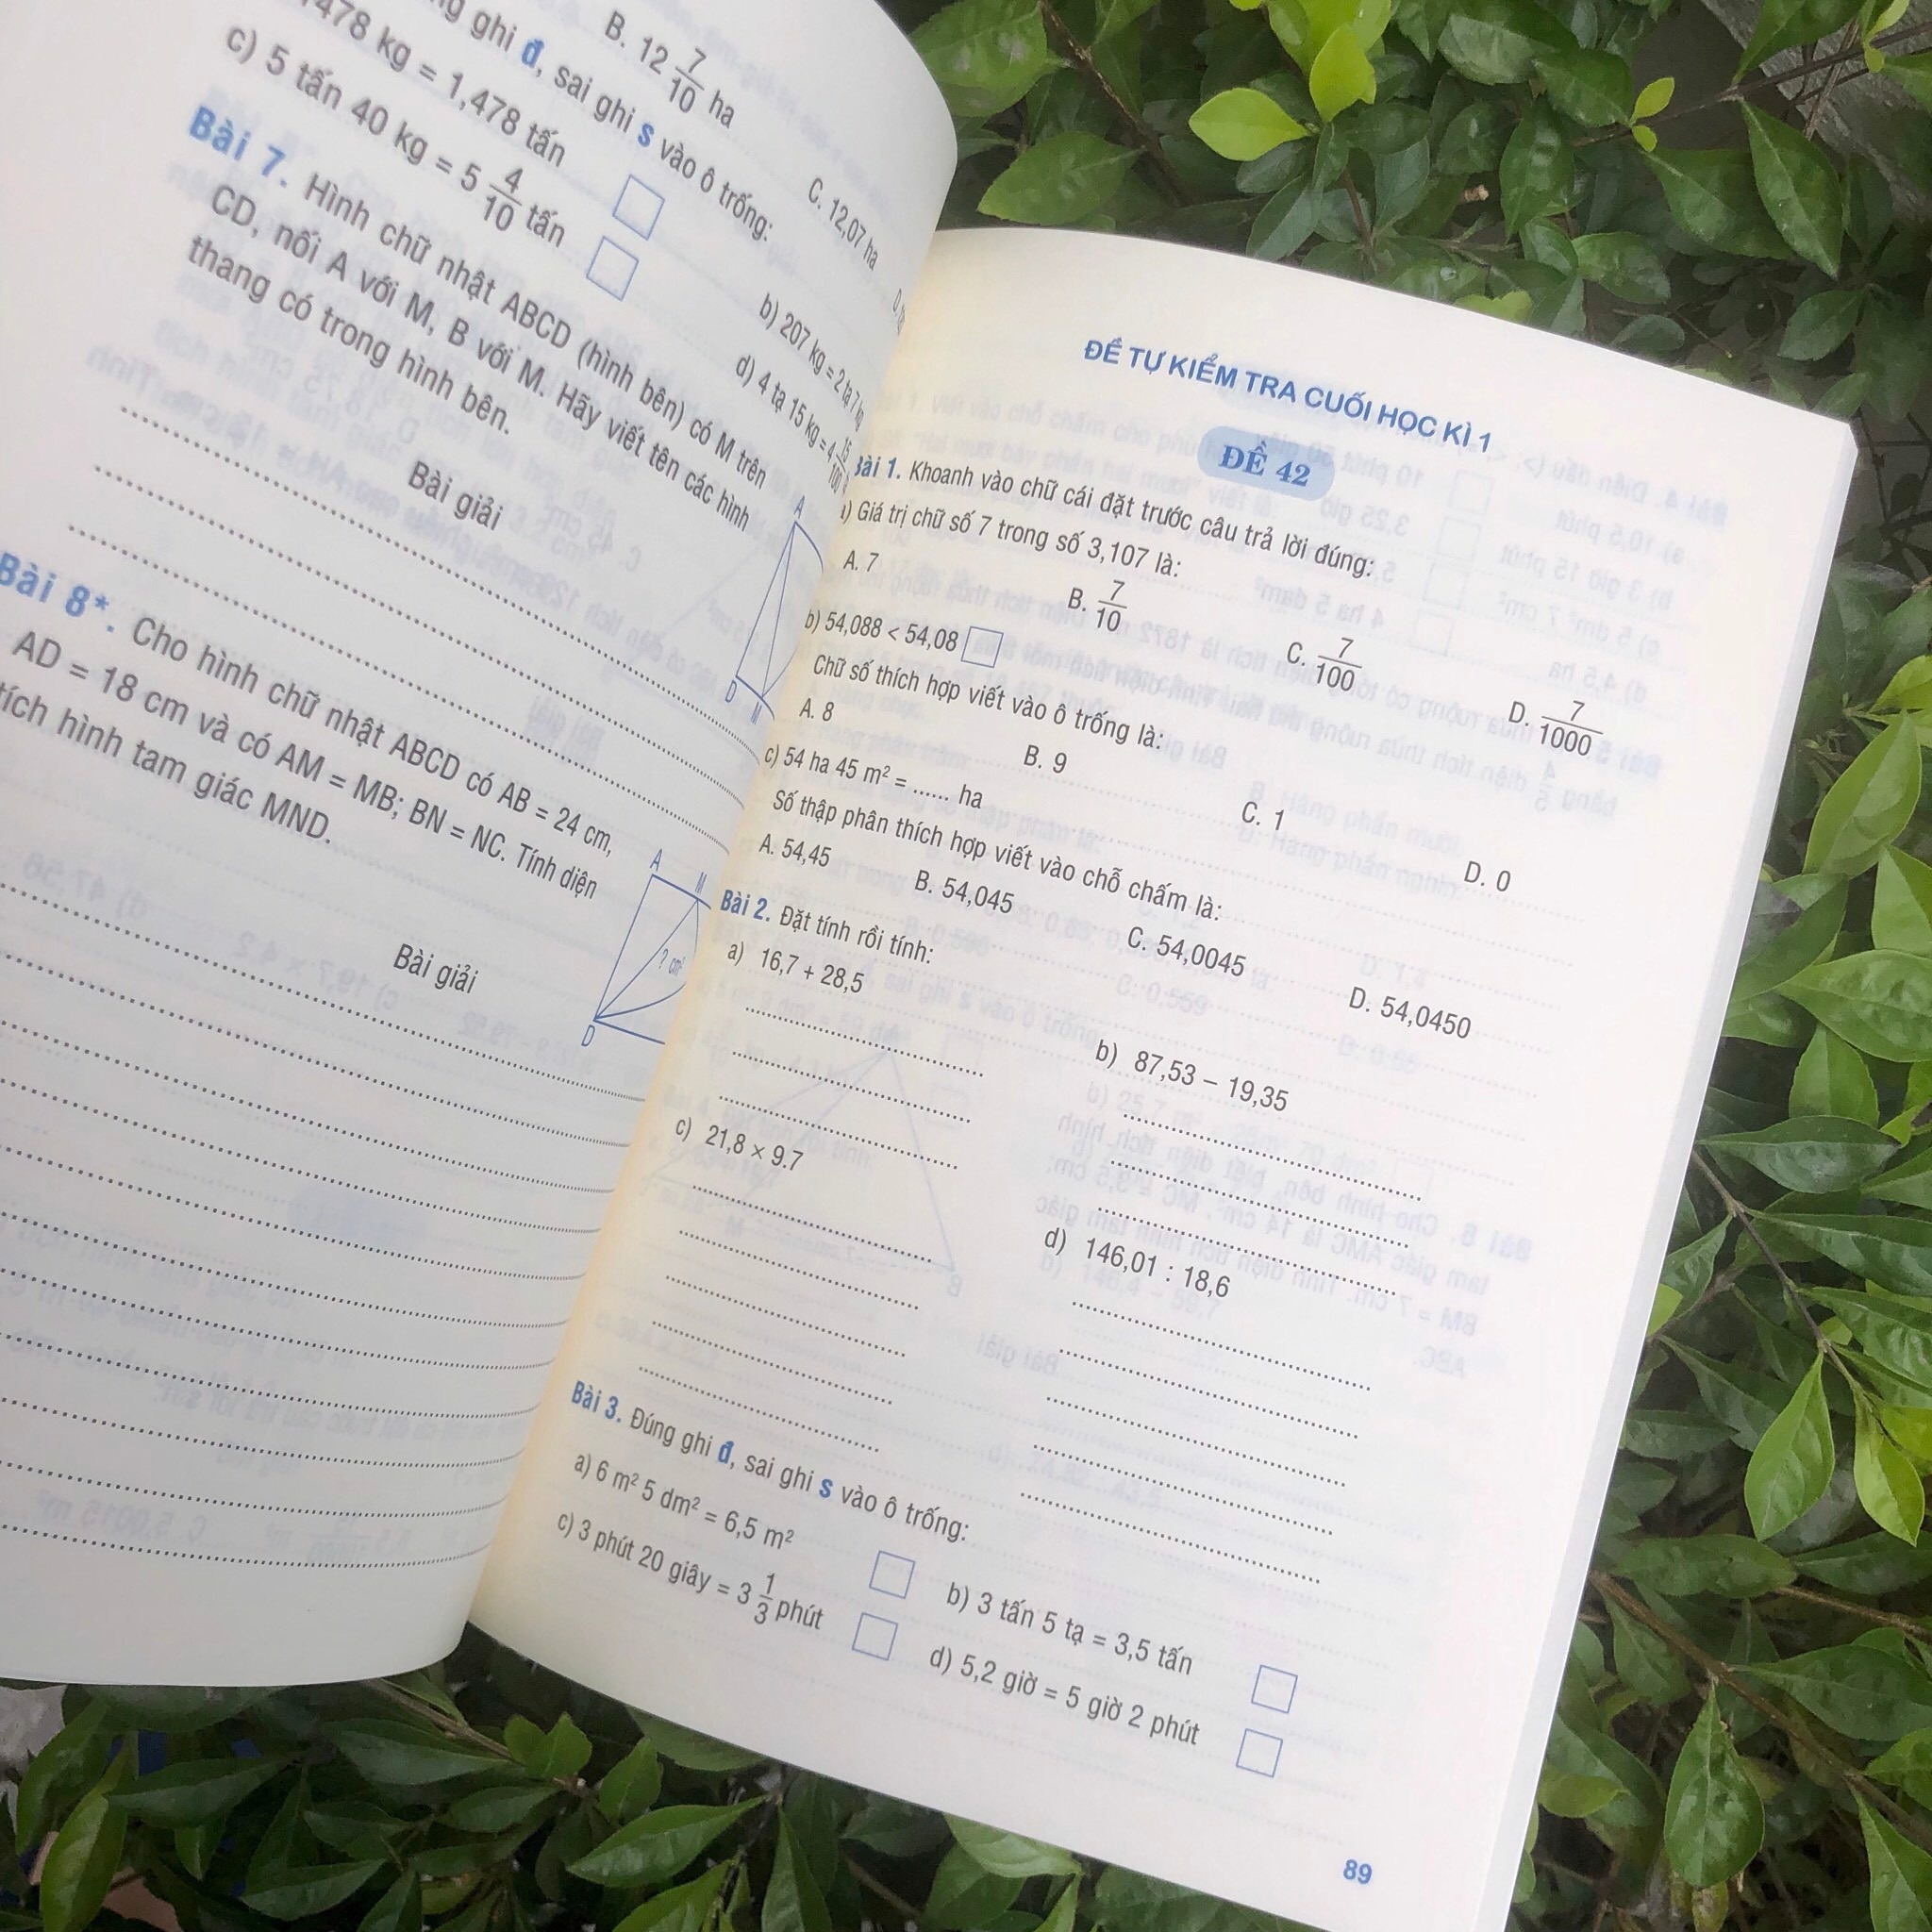 B. 12 7/10 ha
C. 12,07 ha
ghi đ, sai ghi s vào ô trống:
478 kg = 1,478 tấn
b) 207 kg = 2 tạ 7 kg
c) 5 tấn 40 kg = 5 4/10 tấn
d) 4 tạ 15 kg = 4 15/100
Bài 7. Hình chữ nhật ABCD (hình bên) có M trên
CD, nối A với M, B với M. Hãy viết tên các hình
thang có trong hình bên.
A
D
M
Bài giải
Bài 8*. Cho hình chữ nhật ABCD có AB = 24 cm,
AD = 18 cm và có AM = MB; BN = NC. Tính diện
tích hình tam giác MND.
A
M
? cm²
D
Bài giải
ĐỀ TỰ KIỂM TRA CUỐI HỌC KÌ 1
ĐỀ 42
Bài 1. Khoanh vào chữ cái đặt trước câu trả lời đúng:
a) Giá trị chữ số 7 trong số 3,107 là:
A. 7
B. 7/10
C. 7/100
D. 7/1000
b) 54,088 < 54,08
Chữ số thích hợp viết vào ô trống là:
A. 8
B. 9
C. 1
D. 0
c) 54 ha 45 m² = ...... ha
Số thập phân thích hợp viết vào chỗ chấm là:
A. 54,45
B. 54,045
C. 54,0045
D. 54,0450
Bài 2. Đặt tính rồi tính:
a) 16,7 + 28,5
b) 87,53 – 19,35
c) 21,8 × 9.7
d) 146,01 : 18,6
Bài 3. Đúng ghi đ, sai ghi s vào ô trống:
a) 6 m² 5 dm² = 6,5 m²
b) 3 tấn 5 tạ = 3,5 tấn
c) 3 phút 20 giây = 3 1/3 phút
d) 5,2 giờ = 5 giờ 2 phút
89